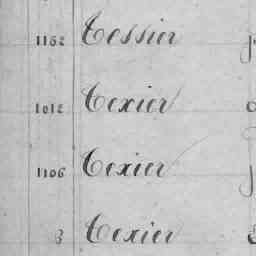 1162 Tessier
1012 Texier
1106 Texier
3 Texier